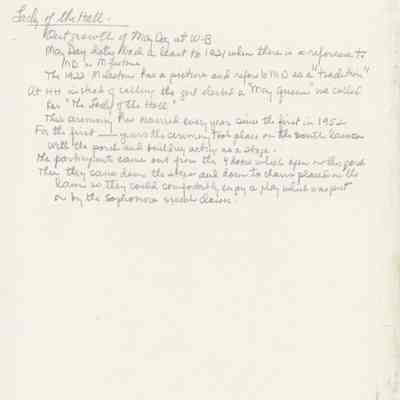 Lady of the Hall.
Outgrowth of May Day at W-B
May Day dates back at least to 1921 when there is a reference to
MD in
The 1922 Milestone has a picture and refers to MD as a "tradition"
At HH instead of calling the girl elected a "May Queen" we called
her "The Lady of the Hall"
This ceremony has occurred every year since the first in 1952
For the first years the ceremony took place on the south lawn
with the porch and building acting as a stage.
The participants came out from the 4 doors which open on the porch
Then they came down the steps and down to chairs placed on the
lawn so they could comfortably enjoy a play which was put
on by the sophomore speech classes.